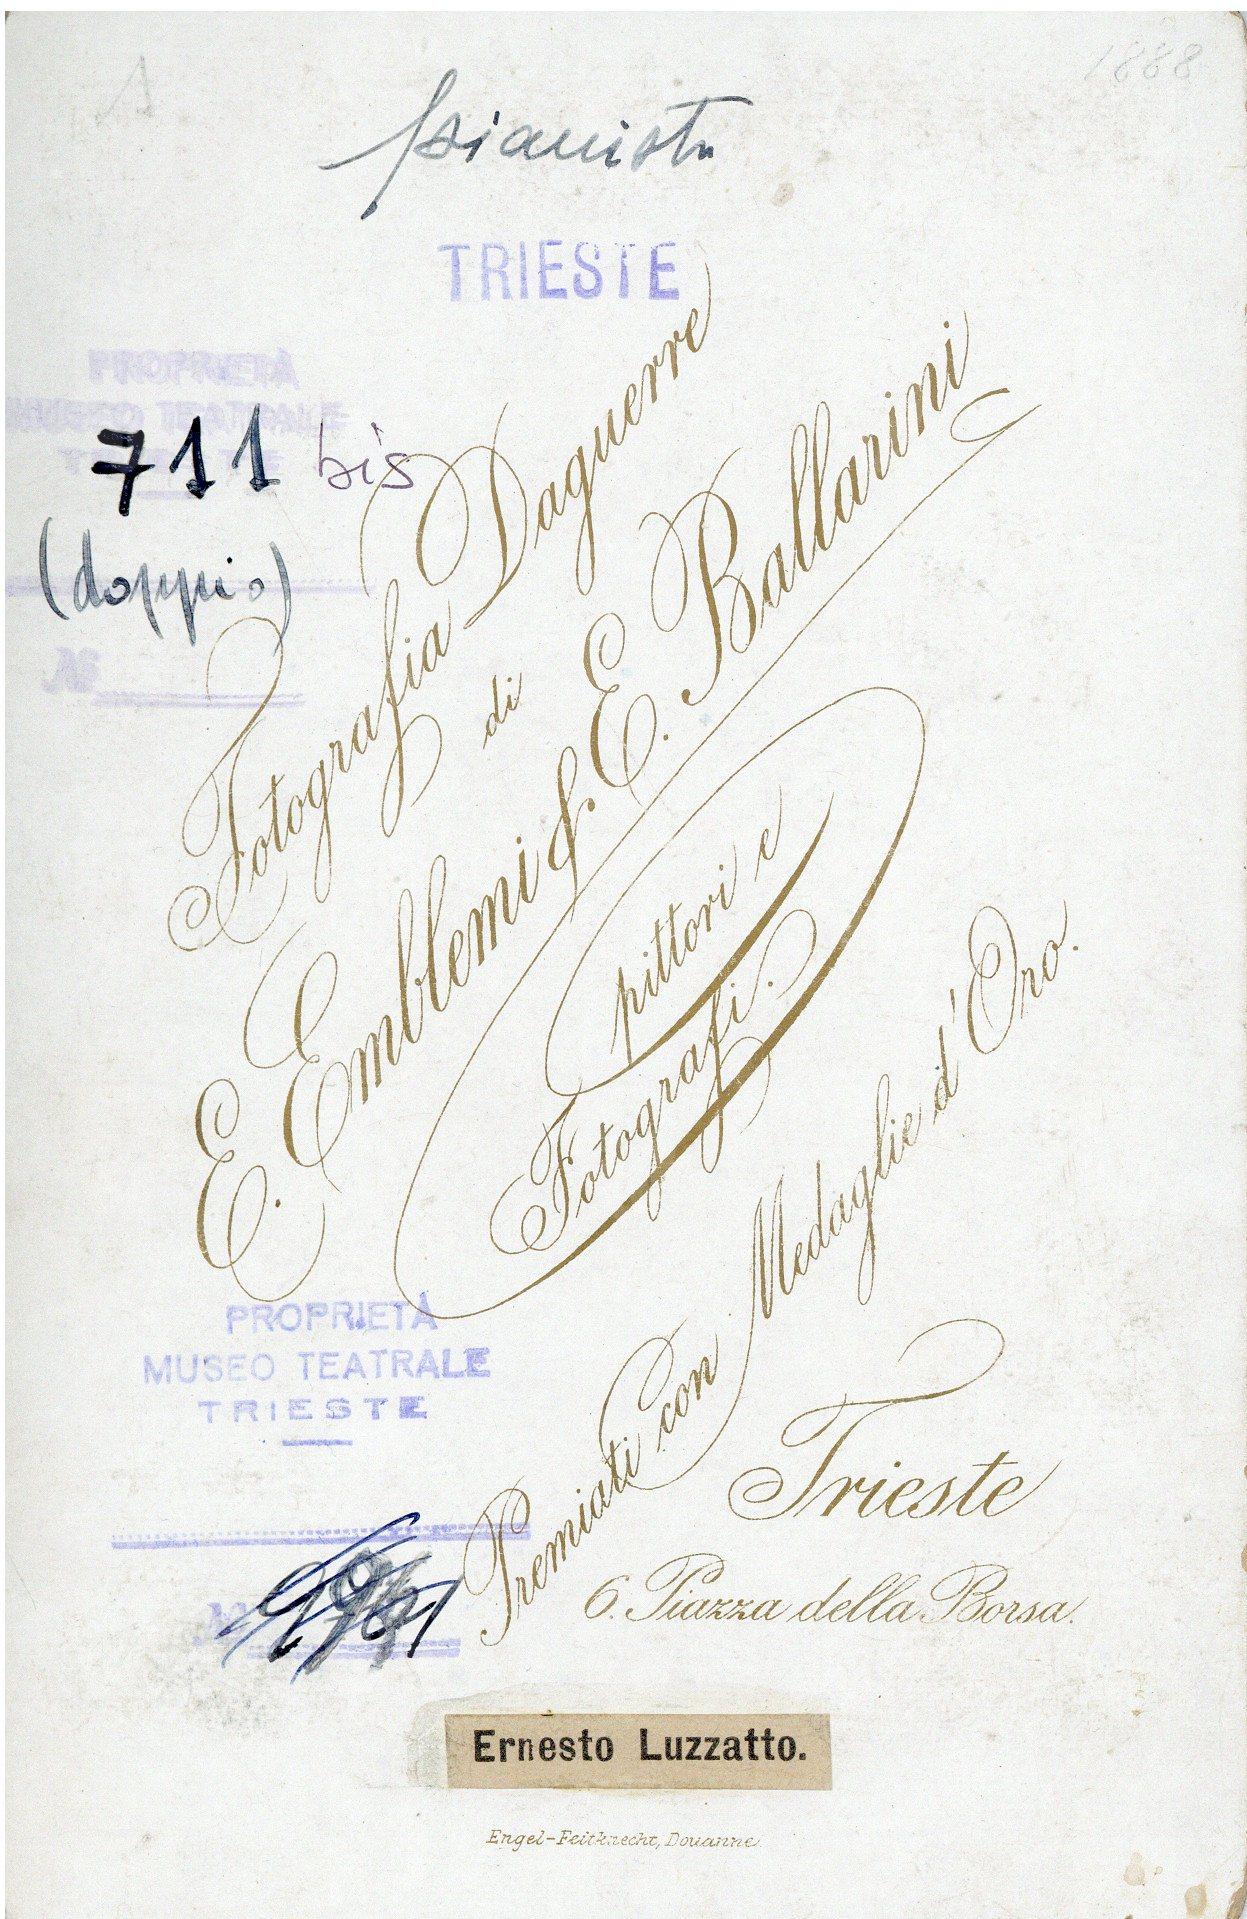 A
1888
pianista
TRIESTE
PROPRIETÀ
MUSEO TEATRALE
TRIESTE
711 bis
(doppio)
No
Fotografia Daguerre
di
E. Emblemi & E. Ballarini
pittori e
Fotografi.
Premiati con Medaglie d'Oro.
Trieste
6. Piazza della Borsa.
PROPRIETÀ
MUSEO TEATRALE
TRIESTE
No
Ernesto Luzzatto.
Engel-Feitknecht, Douanne.